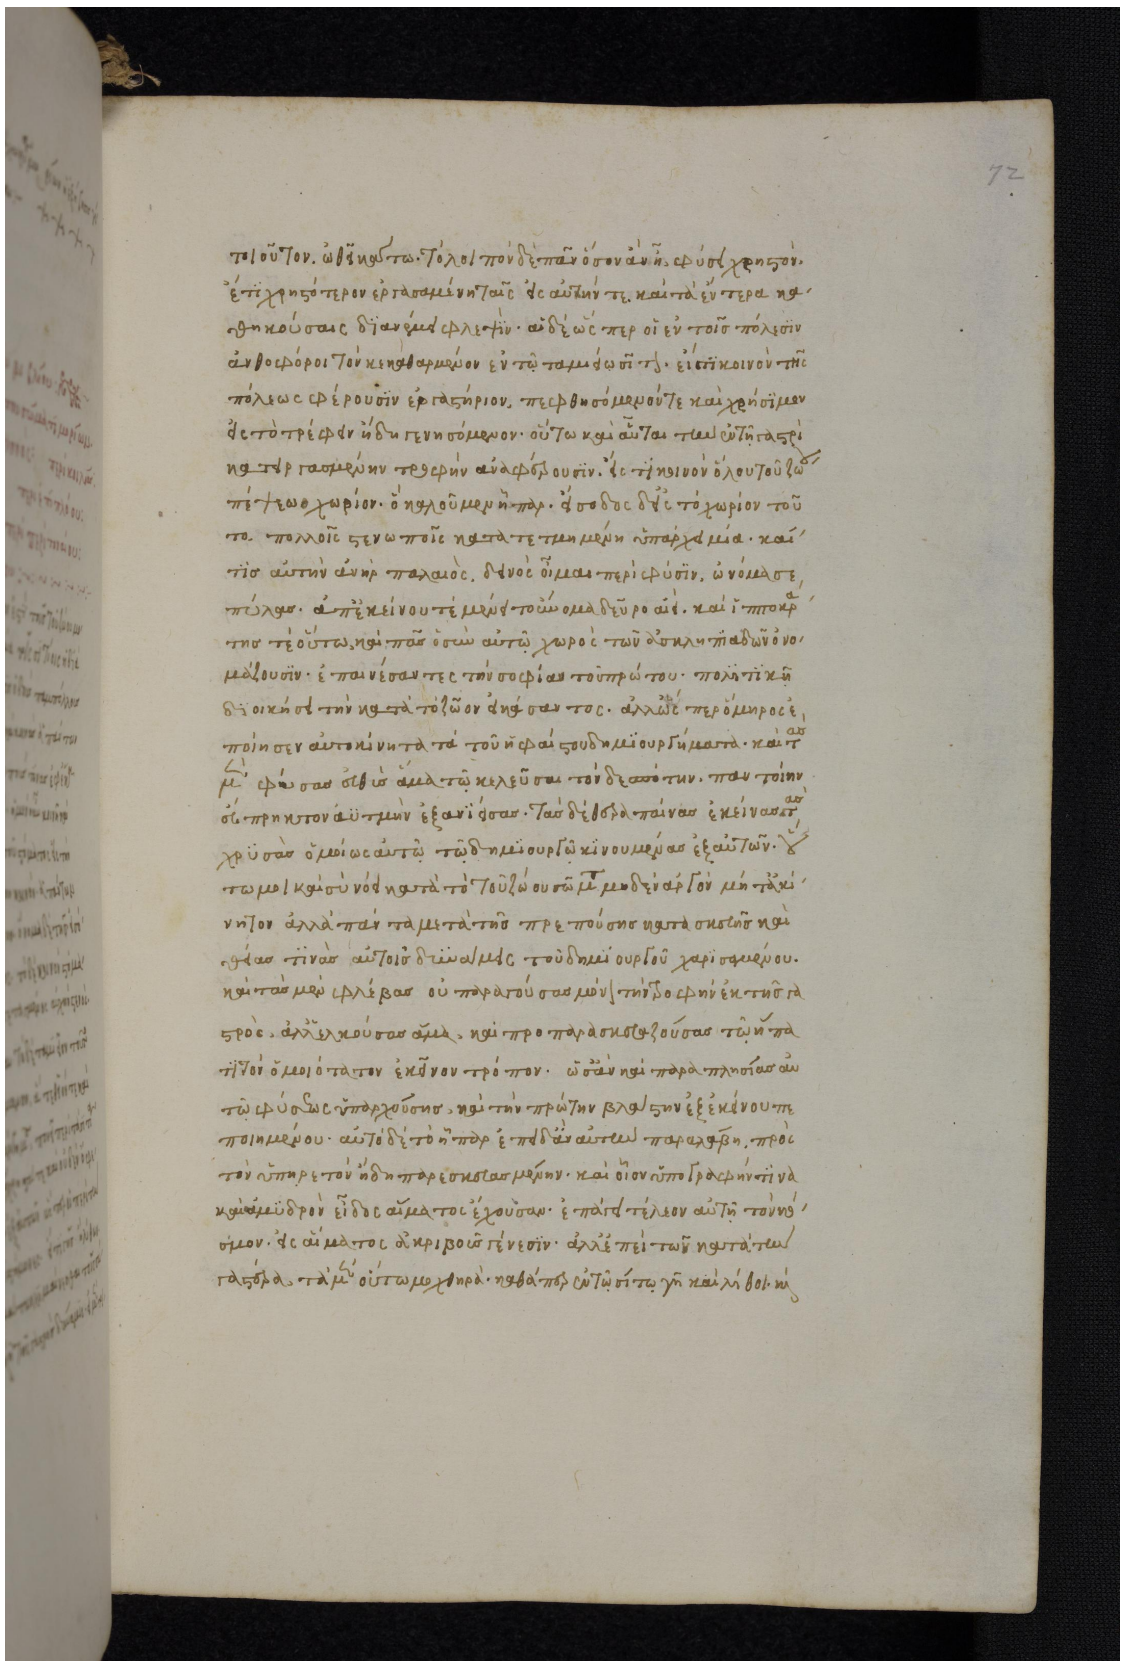 τοιοῦτον, ὠθεῖ κάτω. τὸ λοιπὸν δὲ πᾶν ὅσον ἂν ἦ, φύσει χρηστὸν.
ἔτϊ χρηστότερον ἐργασαμένη ταῖς εἰς αὑτήν τε, καὶ τὰ ἔντερα κα
θηκούσαις δϊανέμει φλεψϊν. αἱ δέ ὥσπερ οἱ ἐν τοῖς πόλεσϊν
ἀνθοφόροι τὸν κεκαθαρμένον ἐν τῶ ταμιείω σῖτον. εἴς τϊ κοινὸν τῆς
πόλεως φέρουσϊν ἐργαστήριον, πεφθησόμενόν τε καὶ χρήσϊμον
εἰς τὸ τρέφειν ἤδη γενησόμενον. οὕτω καὶ αὗται τὴν ἐν τῆ γαστρὶ
κατεργασμένην τροφὴν ἀναφέρουσϊν. εἰς τϊ κοινὸν ὅλου τοῦ ζώου
πέψεως χωρίον. ὃ καλοῦμεν ἧπαρ. εἴσοδος δ εἰς τὸ χωρίον τοῦ
το. πολλοῖς στενωποῖς κατατετμημένη ὑπάρχει μία. καί
τϊς αὐτὴν ἀνὴρ παλαιὸς, δεινὸς οἶμαι περὶ φύσϊν, ὠνόμασε
πύλας. ἀπ ἐκείνου τέ μένει τοὔνομα δεῦρο αἰεί. καὶ ἱπποκρά
της τὲ οὕτω, καὶ πᾶς ὁ σὺν αὐτῶ χωρὸς τῶν ἀσκληπϊαδῶν ὀνο
μάζουσϊν. ἐπαινέσαντες τὴν σοφίαν τοῦ πρώτου. πολϊτϊκῆ
δϊοικήσει τὴν κατὰ τὸ ζῶον εἰκάσαντος. ἀλλ ὥσπερ ὅμηρος ἐ
ποίησεν αὐτοκίνητα τὰ τοῦ ἡφαίστου δημϊουργήματα. καὶ τὰς
μὲν φύσας εὐθὺς ἅμα τῶ κελεῦσαι τὸν δεσπότην. παντοίην
εὔπρηκτον ἀϋτμὴν ἐξανϊείσας. τὰς δὲ θεραπαίνας ἐκείνας τὰς
χρϋσὰς ὁμοίως αὐτῶ τῶ δημϊουργῶ κϊνουμένας ἐξ αὑτῶν. οὕ
τω μοι καὶ σὺ νόει κατὰ τὸ τοῦ ζώου σῶμα μηδὲν ἀργὸν μήτ ἀκί
νητον ἀλλὰ πάντα μετὰ τῆς πρεπούσης κατασκευῆς καὶ
θείας τϊνὰς αὐτοῖς δυνάμεις τοῦ δημϊουργοῦ χαρϊσαμένου.
καὶ τὰς μὲν φλέβας οὐ παραγούσας μόνον τὴν τροφὴν ἐκ τῆς γα
στρὸς. ἀλλ ἑλκούσας ἅμα, καὶ προπαρασκευαζούσας τῶ ἥπα
τϊ τὸν ὁμοιότατον ἐκεῖνον τρόπον. ὡς ἂν καὶ παραπλησίας αὐ
τῶ φύσεως ὑπαρχούσης, καὶ τὴν πρώτην βλάστην ἐξ ἐκείνου πε
ποιημένου. αὐτὸ δὲ τὸ ἧπαρ ἐπειδὰν αὐτὴν παραλάβη, πρὸς
τὸν ὑπηρετὸν ἤδη παρεσκευασμένην. καὶ οἷον ὑπογραφήν τϊνα
καὶ ἀμϋδρὸν εἶδος αἵματος ἔχουσαν. ἐπάγει τέλεον αὐτῆ τὸν κό
σμον. εἰς αἵματος ἀκριβοῦς γένεσϊν. ἀλλ ἐπεὶ τῶν κατὰ τὴν
γαστέρα, τὰ μὲν οὕτω μοχθηρὰ. καθάπερ ἐν τῶ σίτω γῆ καὶ λίθοι. καὶ